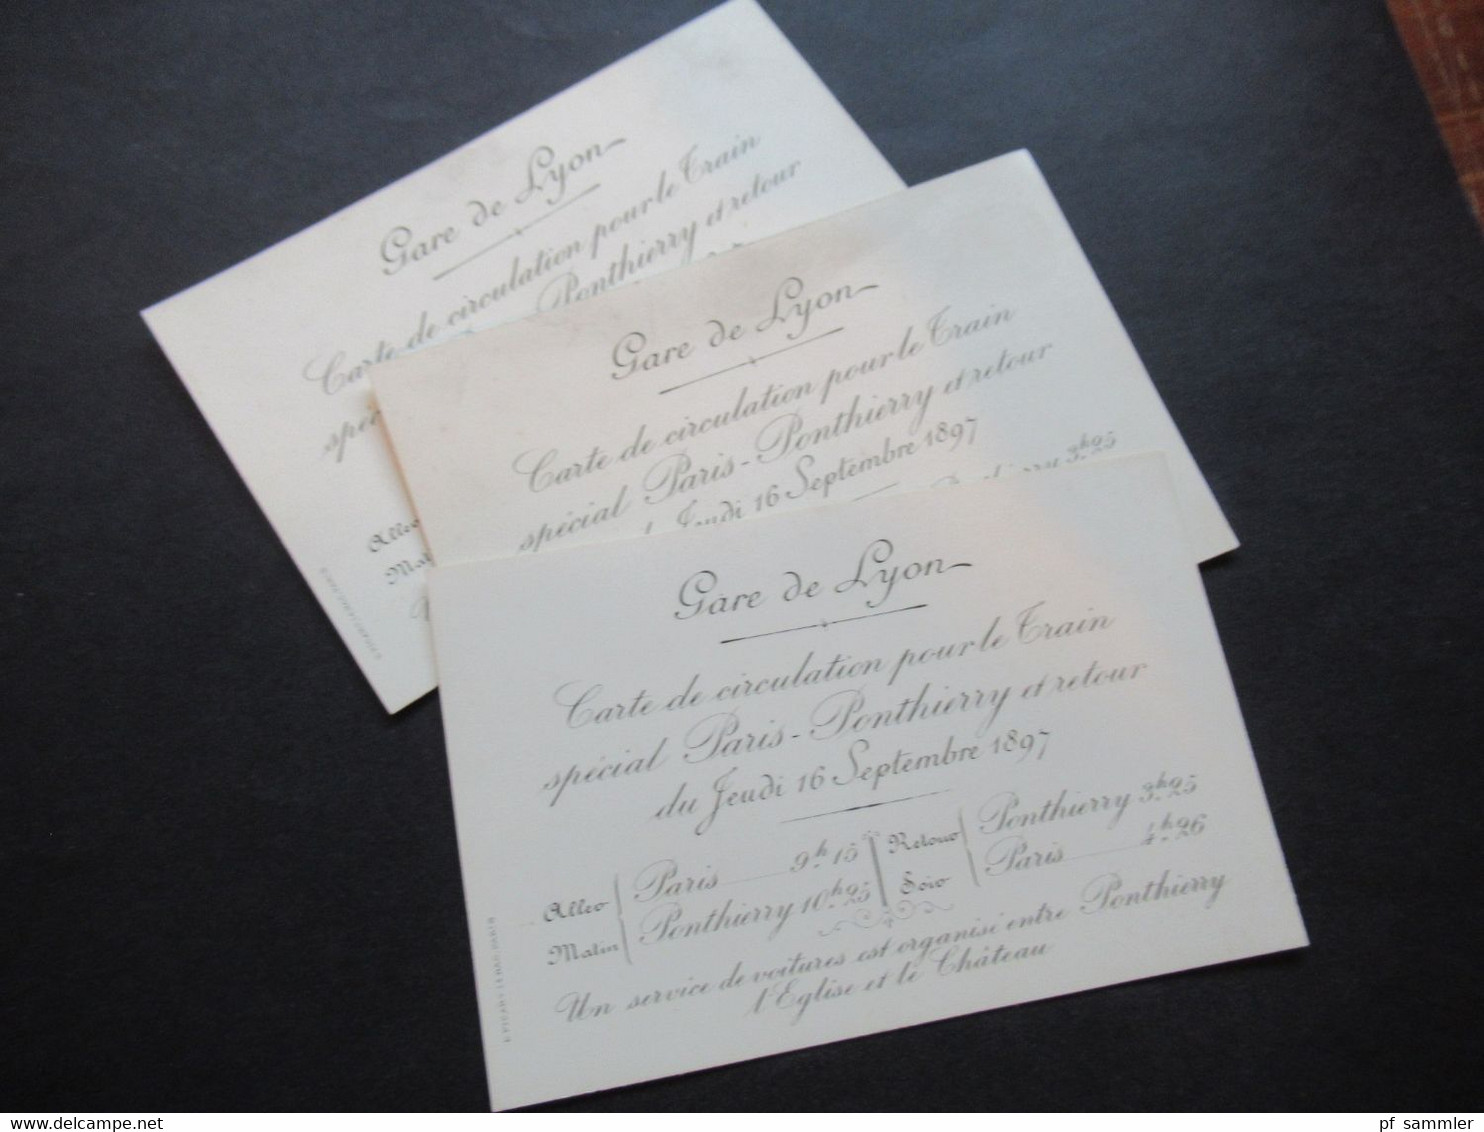 Gare de Lyon
Carte de circulation pour le Train
Ponthierry et retour
Aller
Gare de Lyon
Carte de circulation pour le Train
spécial Paris-Ponthierry et retour
Jeudi 16 Septembre 1897
3.h25
Gare de Lyon
Carte de circulation pour le Train
spécial Paris-Ponthierry et retour
du Jeudi 16 Septembre 1897
Aller Matin
Paris 9.h15
Ponthierry 10.h25
Retour Soir
Ponthierry 3.h25
Paris 4.h26
Un service de voitures est organisé entre Ponthierry
l'Eglise et le Château
www.delcampe.net
pf_sammler